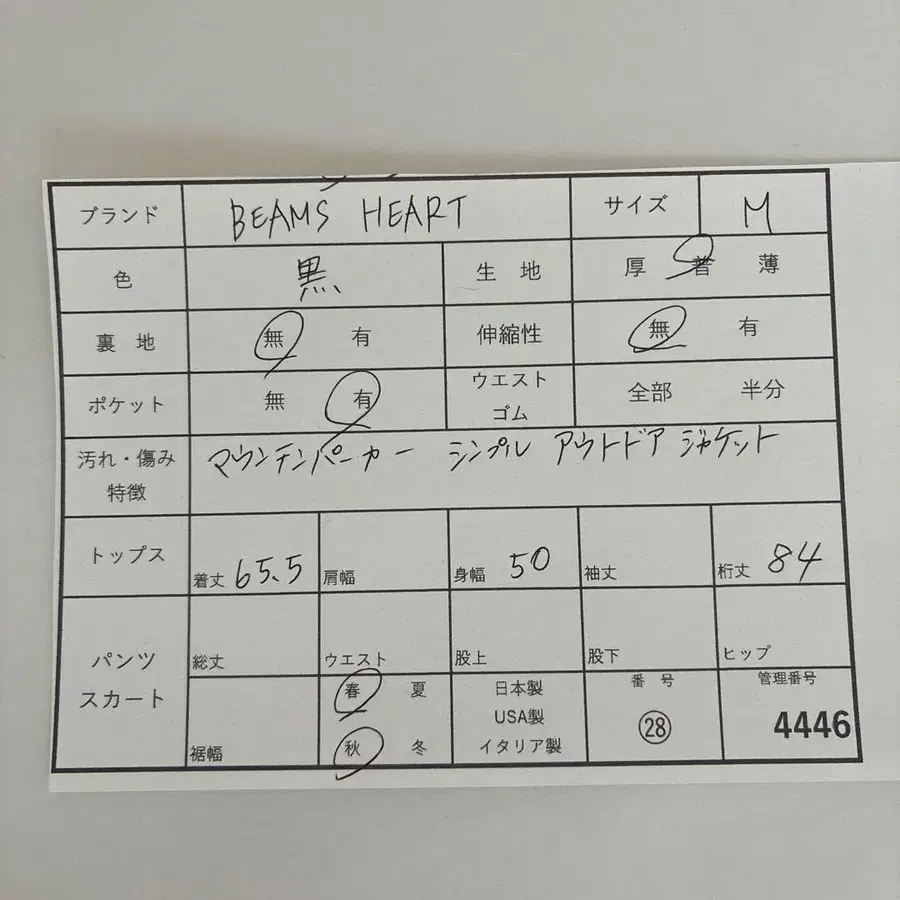 ブランド BEAMS HEART サイズ M
色 黒 生地 厚 普 薄
裏地 無 有 伸縮性 無 有
ポケット 無 有 ウエスト ゴム 全部 半分
汚れ・傷み 特徴 マウンテンパーカー シンプル アウトドア ジャケット
トップス 着丈 65.5 肩幅 身幅 50 袖丈 裄丈 84
パンツ スカート 総丈 ウエスト 股上 股下 ヒップ
裾幅 春 夏 秋 冬 日本製 USA製 イタリア製 番号 28 管理番号 4446